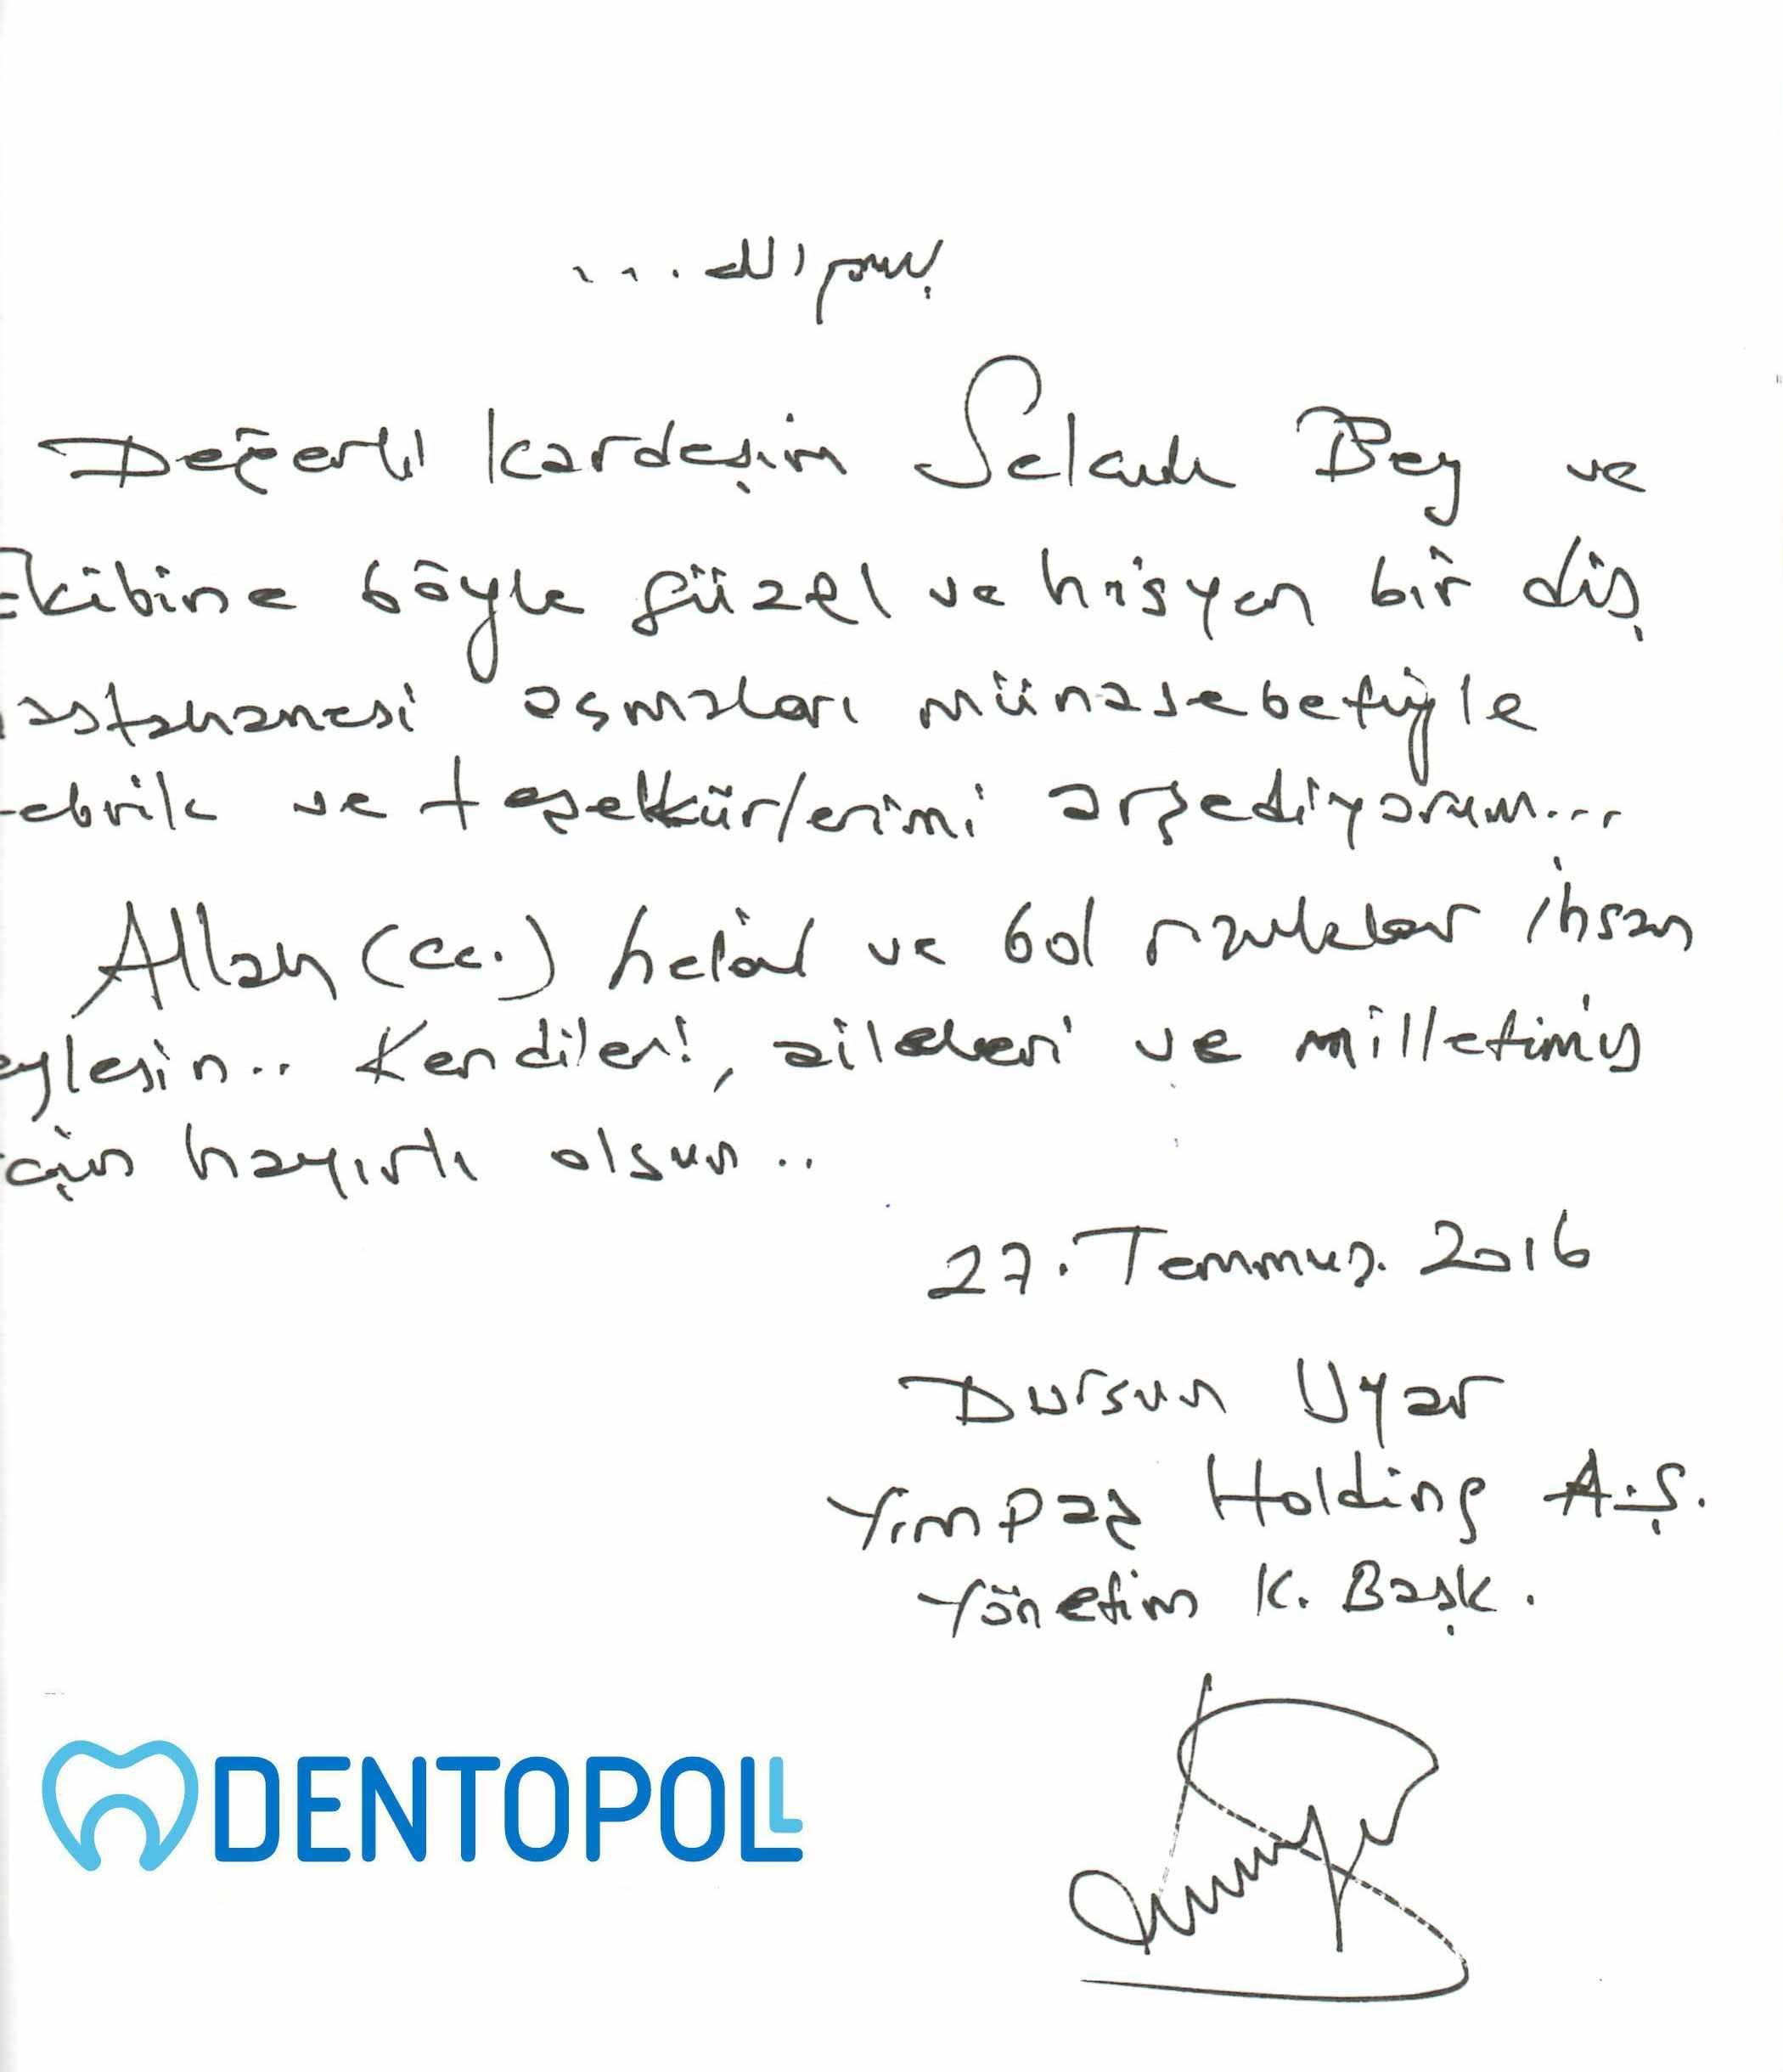 بسم الله ...
Değerli Kardeşim Selçuk Bey ve
Ekibine böyle güzel ve hijyen bir diş
hastahanesi açmaları münasebetiyle
tebrik ve teşekkürlerimi arzediyorum...
Allah (cc.) helâl ve bol rızıklar ihsan
eylesin.. Kendileri, aileleri ve milletimiz
için hayırlı olsun..
27. Temmuz. 2016
Dursun Uyar
Yimpaş Holding A.Ş.
Yönetim K. Başk.
DENTOPOLL